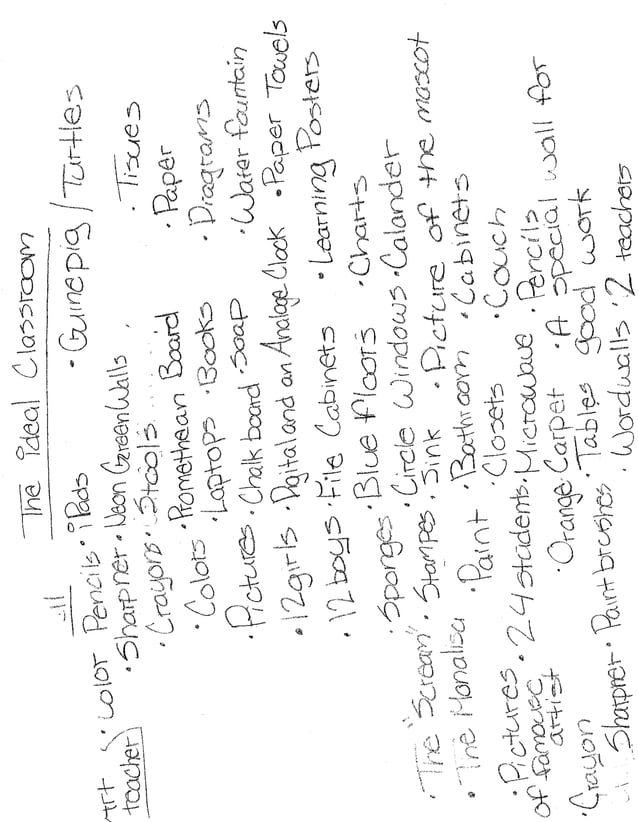 The ideal Classroom
Art teacher
· Color Pencils · iPads · Guinepig / Turtles
· Sharpner · Neon Green Walls · Tissues
· Crayons · Stools · Paper
· Promethean Board
· Colors · Laptops · Books · Diagrams
· Pictures · Chalk board · soap · Water fountain
· 12 girls · Digital and an Analoge Clock · Paper Towels
· 12 boys · File Cabinets · Learning Posters
· Sponges · Blue Floors · Charts
· The "Scream" · Stamps · Circle Windows · Calander
· Sink · Picture of the mascot
· The Monalisa · Paint · Bathroom · Cabinets
· Closets · Couch
· Pictures · 24 students · Microwave · Pencils
of famouse artist · Orange Carpet · A special wall for
· Tables good work
· Crayon Sharpner · Paint brushes · Wordwalls · 2 teachers